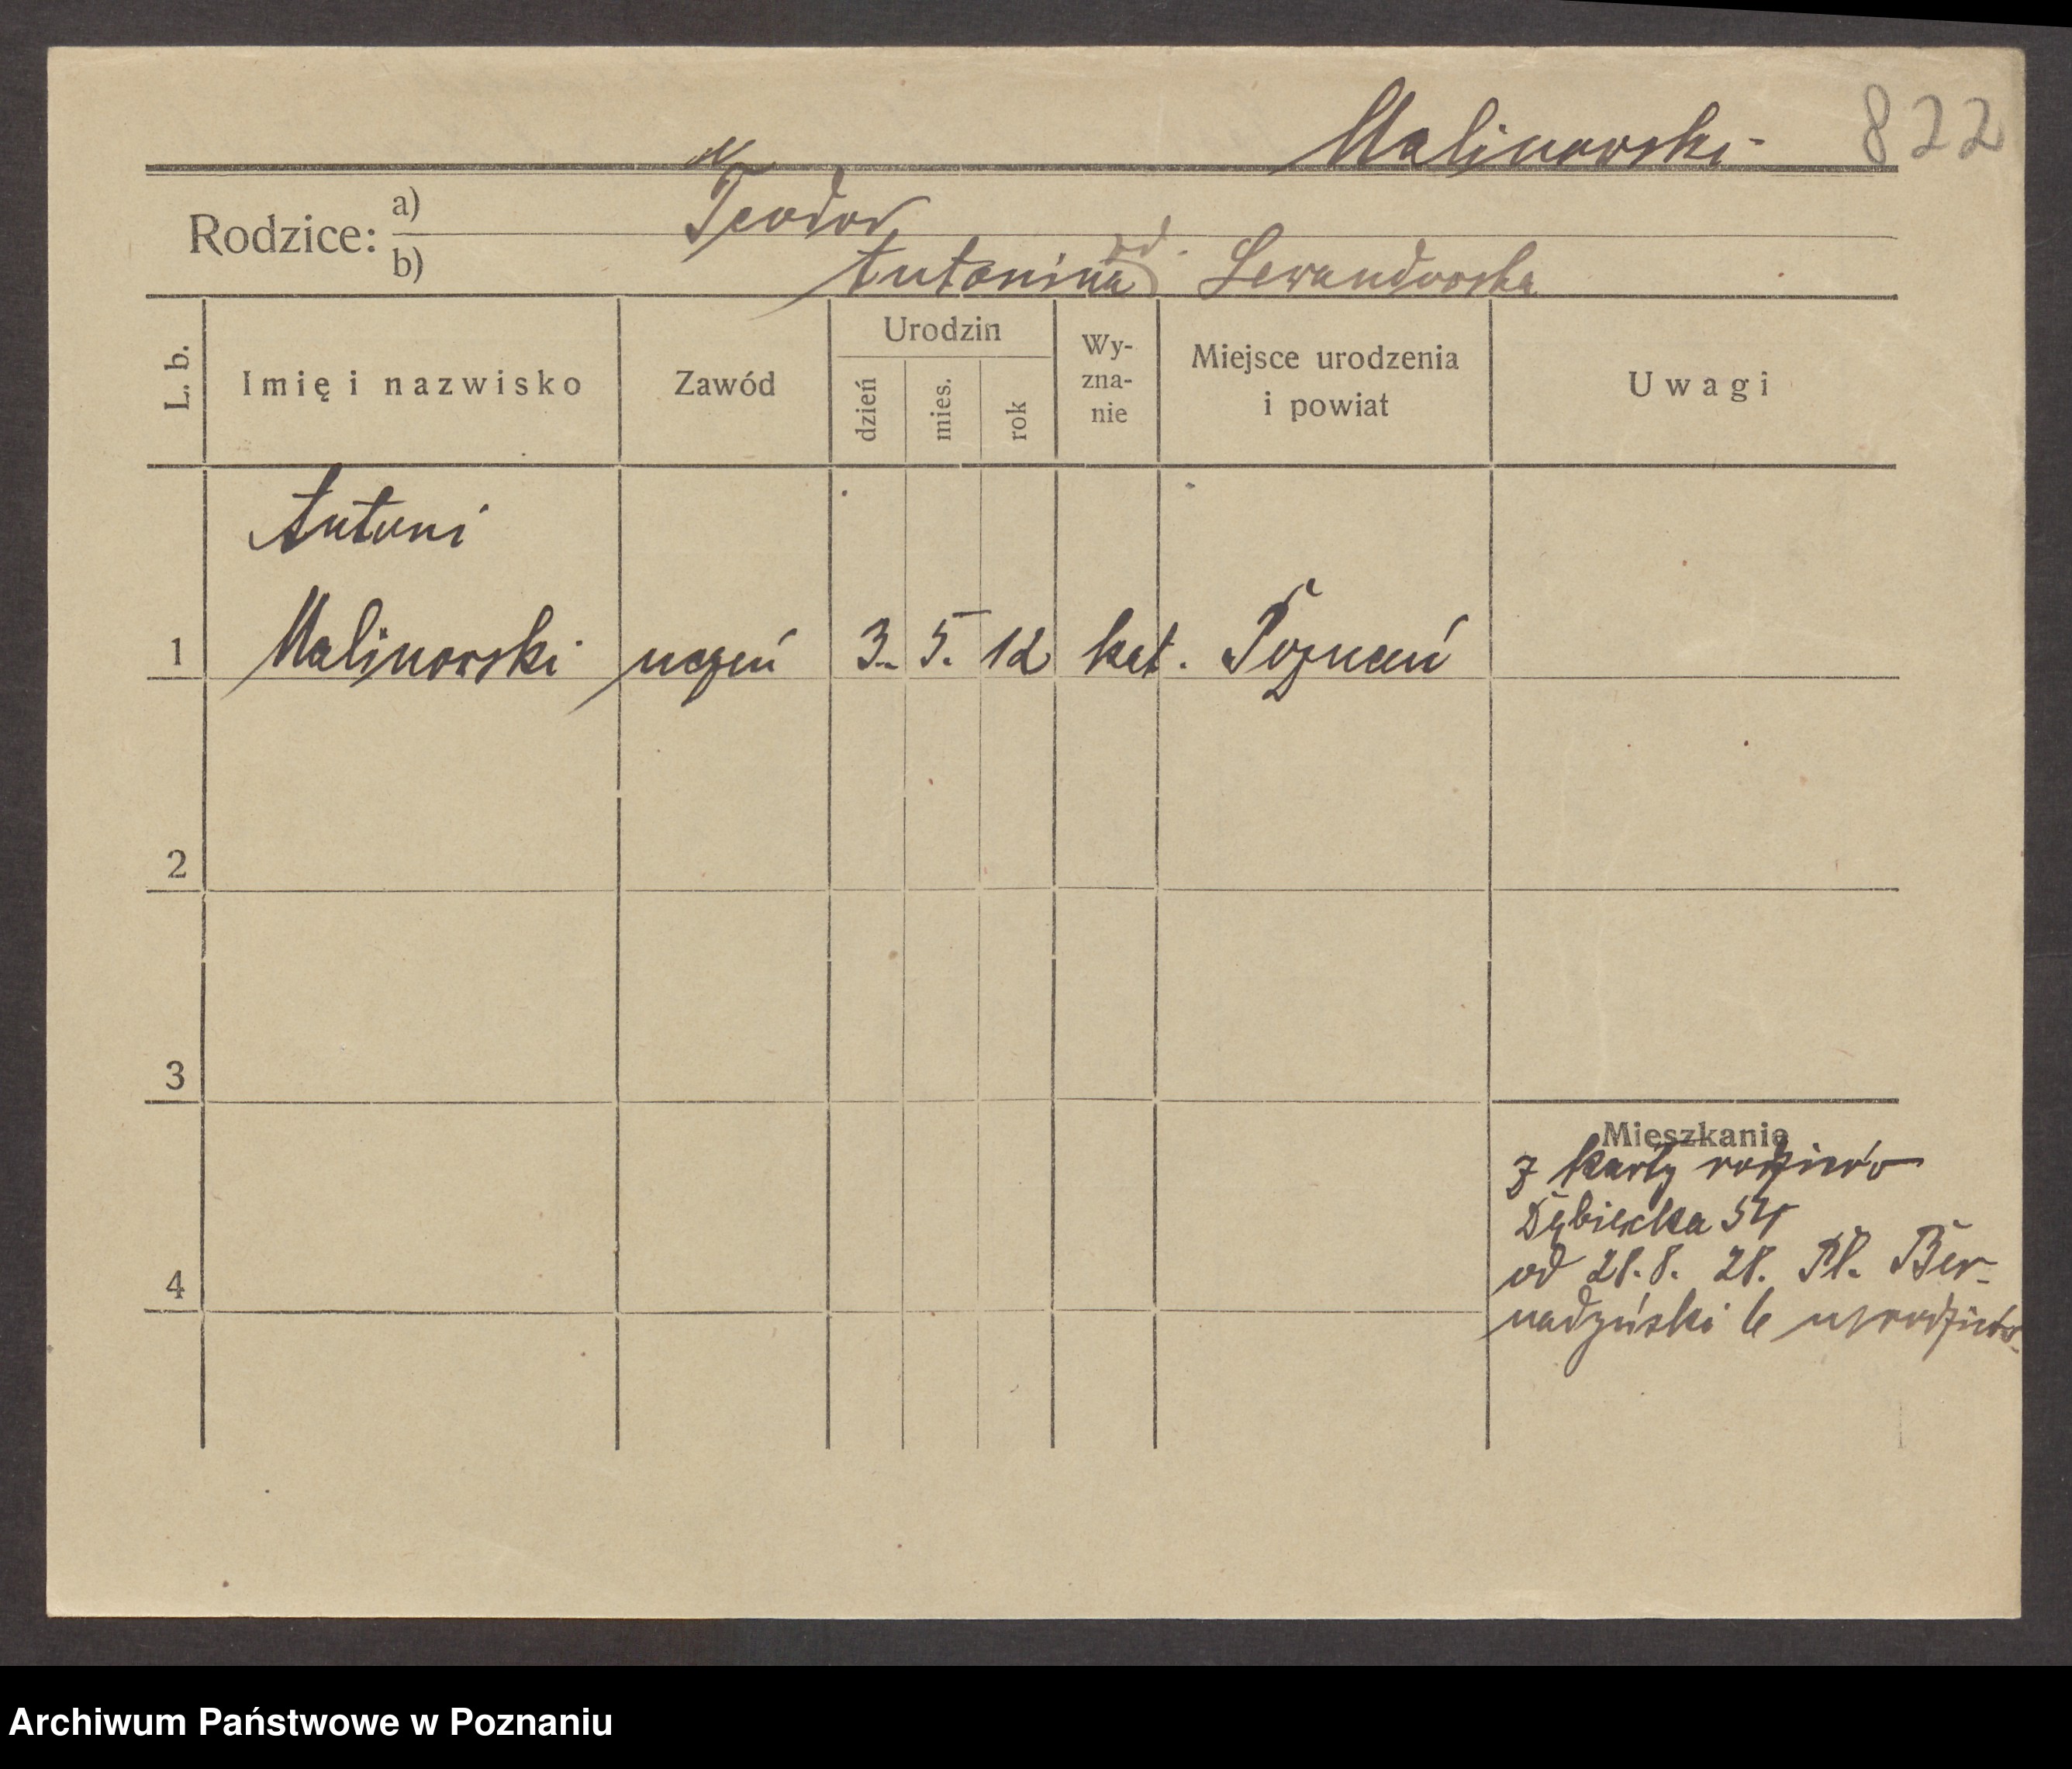 Malinowski 822
Rodzice: a) Teodor
b) Antonina zd. Lewandowska
L. b. Imię i nazwisko Zawód Urodzin dzień mies. rok Wy-zna-nie Miejsce urodzenia i powiat Uwagi
Antoni
1 Malinowski uczeń 3. 5. 12 kat. Poznań
2
3
Mieszkanie
z karty rodziców
Dębiecka 54
4 od 28.8. 28. Pl. Ber-
nadyński 6 u rodziców
Archiwum Państwowe w Poznaniu